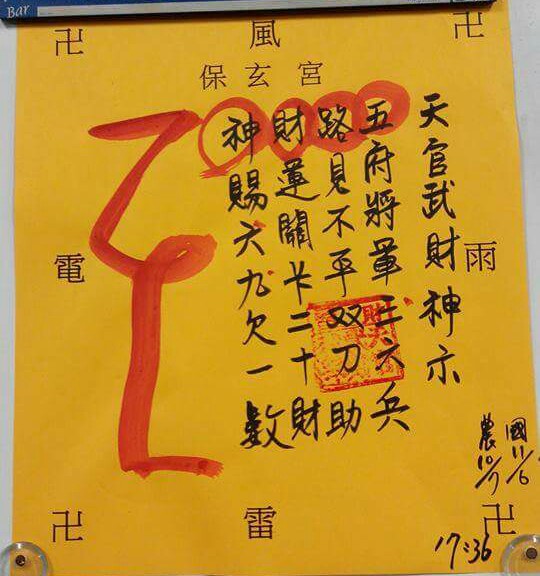 Bar
卍 風 卍
保玄宮
天官武財神示
五府將軍三六兵
路見不平双刀助
財蓮關卡二十財
神賜六九欠一數
電
雨
國11/6
農10/7
卍 雷 卍
17:36